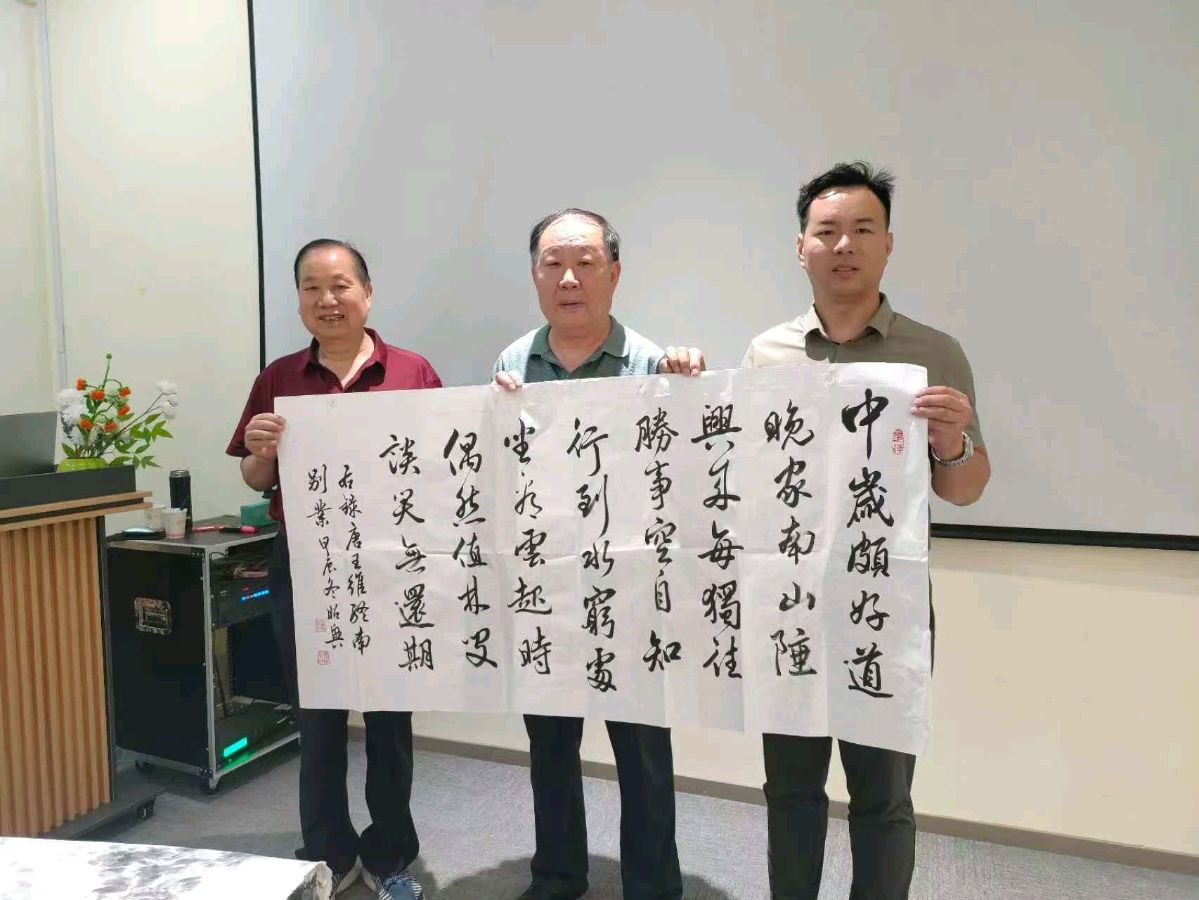 中歲頗好道
晚家南山陲
興來每獨往
勝事空自知
行到水窮處
坐看雲起時
偶然值林叟
談笑無還期
右錄唐王維終南
別業甲辰冬昭興